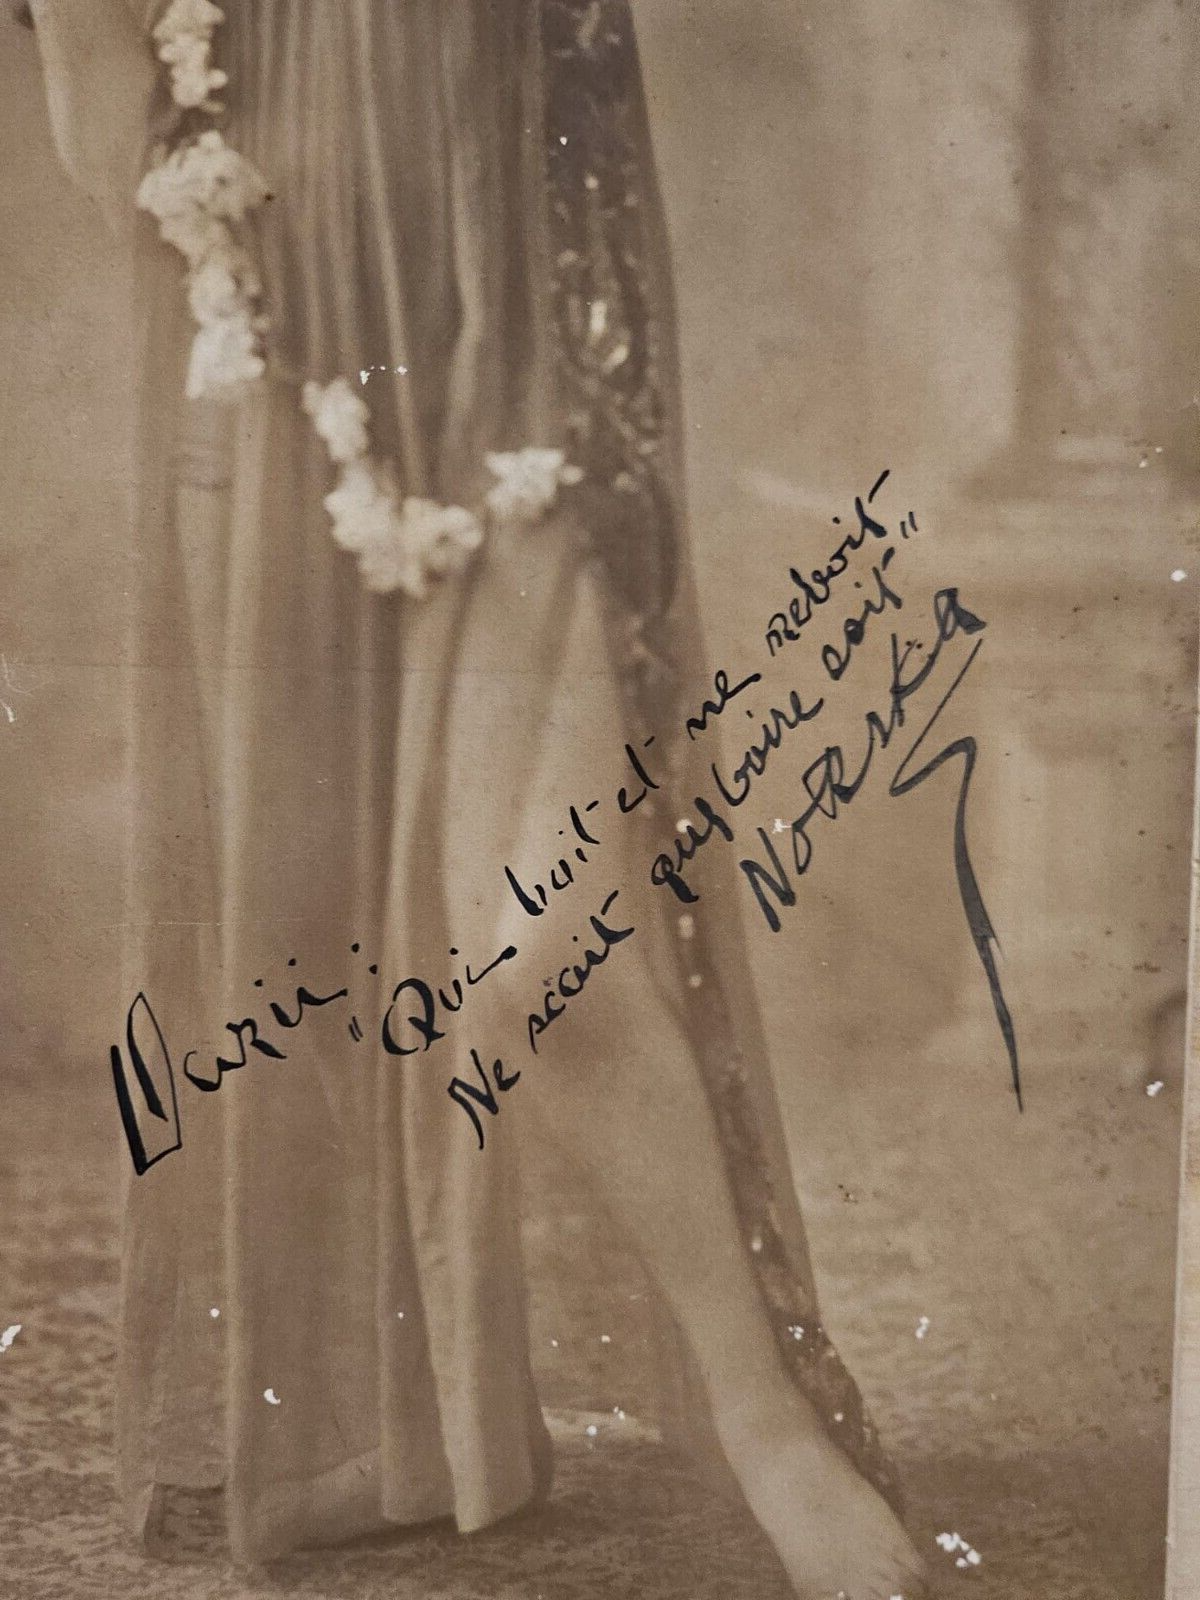 Darii :
"Qui boit et ne reboit
Ne scait que boire soit"